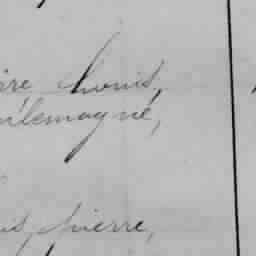 ire Louis,
uilemagne,
is, pierre,